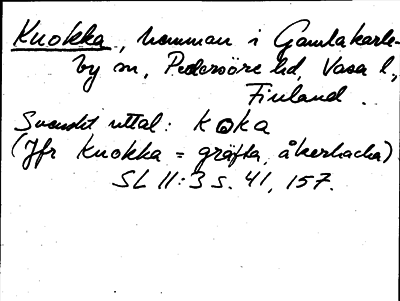 Kuokka, hemman i Gamlakarle-
by sn, Pedersöre hd, Vasa l,
Finland.
Svenskt uttal: kωka
(Jfr kuokka = gräfta, åkerhacka)
SL II:3 s. 41, 157.